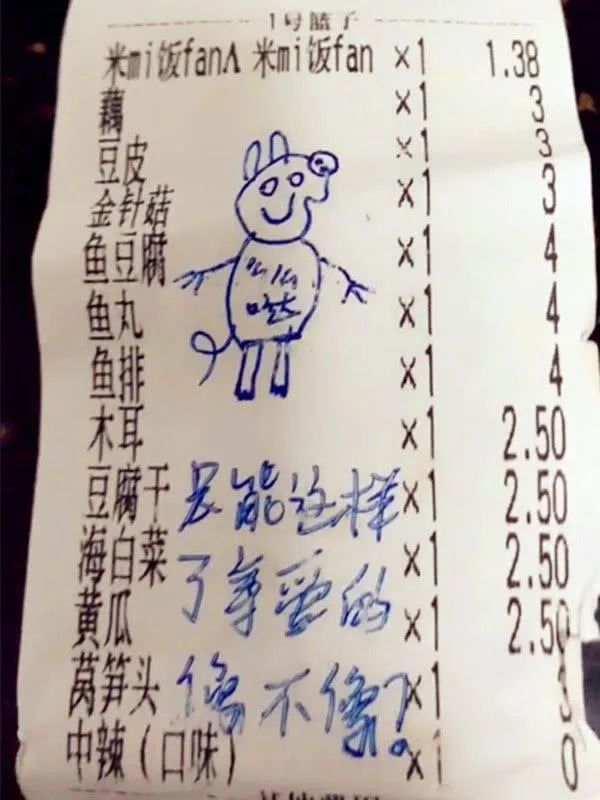 1号篮子
米mi饭fanΛ 米mi饭fan ×1 1.38
藕 ×1 3
豆皮 ×1 3
金针菇 ×1 3
鱼豆腐 ×1 4
鱼丸 ×1 4
鱼排 ×1 4
木耳 ×1 2.50
豆腐干 ×1 2.50
海白菜 ×1 2.50
黄瓜 ×1 2.50
莴笋头 ×1 3
中辣（口味） ×1 0
么么
哒
只能这样
了亲爱的
像不像?